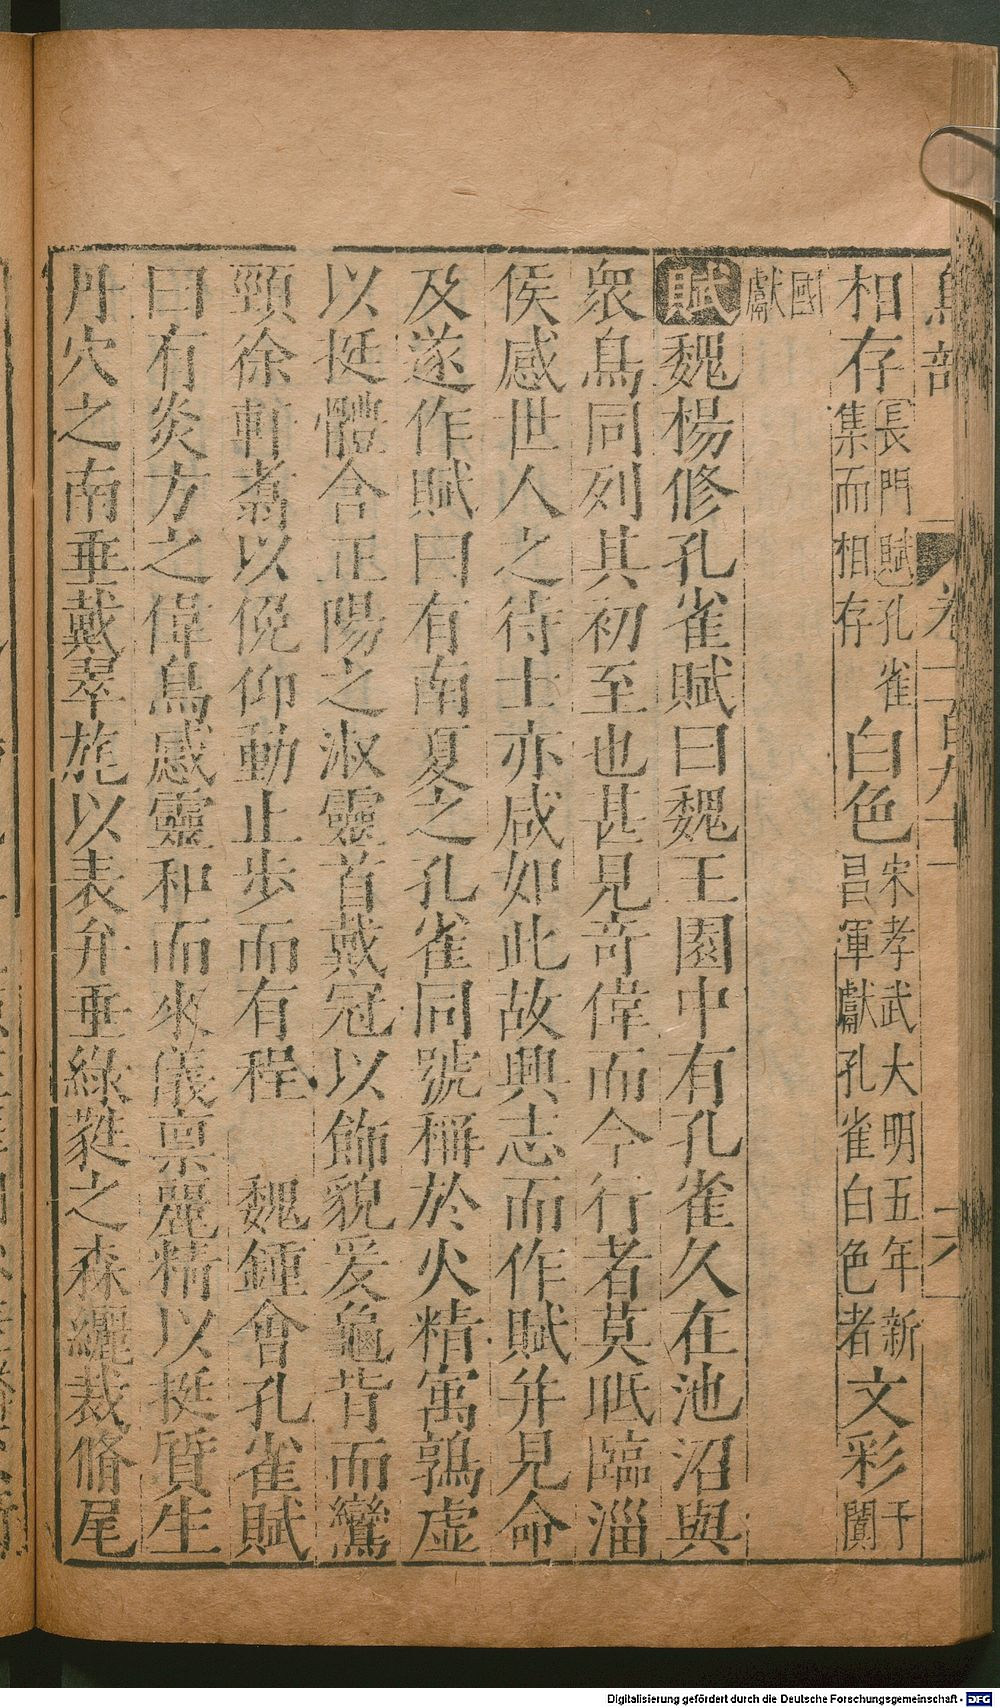 鳥部 卷一百九十一 六
相存長門賦孔雀集而相存白色宋孝武大明五年新昌軍獻孔雀白色者文彩于闐
國獻
賦魏楊修孔雀賦曰魏王園中有孔雀久在池沼與
衆鳥同列其初至也甚見奇偉而今行者莫眂臨淄
侯感世人之待士亦咸如此故興志而作賦并見命
及遂作賦曰有南夏之孔雀同號稱於火精寓鶉虚
以挺體含正陽之淑靈首戴冠以飾貌爰龜背而鸞
頸徐軒翥以俛仰動止步而有程 魏鍾會孔雀賦
曰有炎方之偉鳥感靈和而來儀禀麗精以挺質生
丹穴之南垂戴翠旄以表弁垂綠蕤之森纚裁脩尾
Digitalisierung gefördert durch die Deutsche Forschungsgemeinschaft - DFG